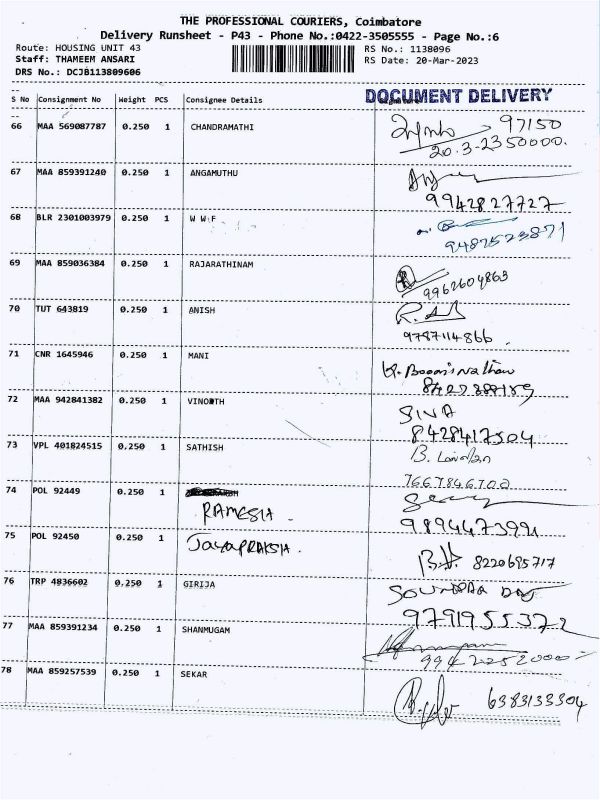 THE PROFESSIONAL COURIERS, Coimbatore
Delivery Runsheet - P43 - Phone No.:0422-3505555 - Page No.:6
Route: HOUSING UNIT 43
RS No.: 1138096
Staff: THAMEEM ANSARI
RS Date: 20-Mar-2023
DRS No.: DCJB113809606
S No Consignment No Weight PCS Consignee Details
DOCUMENT DELIVERY
66 MAA 569087787 0.250 1 CHANDRAMATHI
97150
20.3-2350000.
67 MAA 859391240 0.250 1 ANGAMUTHU
9942827727
68 BLR 2301003979 0.250 1 W W F
9487523871
69 MAA 859036384 0.250 1 RAJARATHINAM
9962604863
70 TUT 643819 0.250 1 ANISH
9787114866.
71 CNR 1645946 0.250 1 MANI
72 MAA 942841382 0.250 1 VINOTH
SIVA
8428417504
73 VPL 401824515 0.250 1 SATHISH
7667846702
74 POL 92449 0.250 1
RAMESH.
9894473991
75 POL 92450 0.250 1 JayaPRAKSH.
8220695717
76 TRP 4836602 0.250 1 GIRIJA
9791955372
77 MAA 859391234 0.250 1 SHANMUGAM
78 MAA 859257539 0.250 1 SEKAR
6383133304